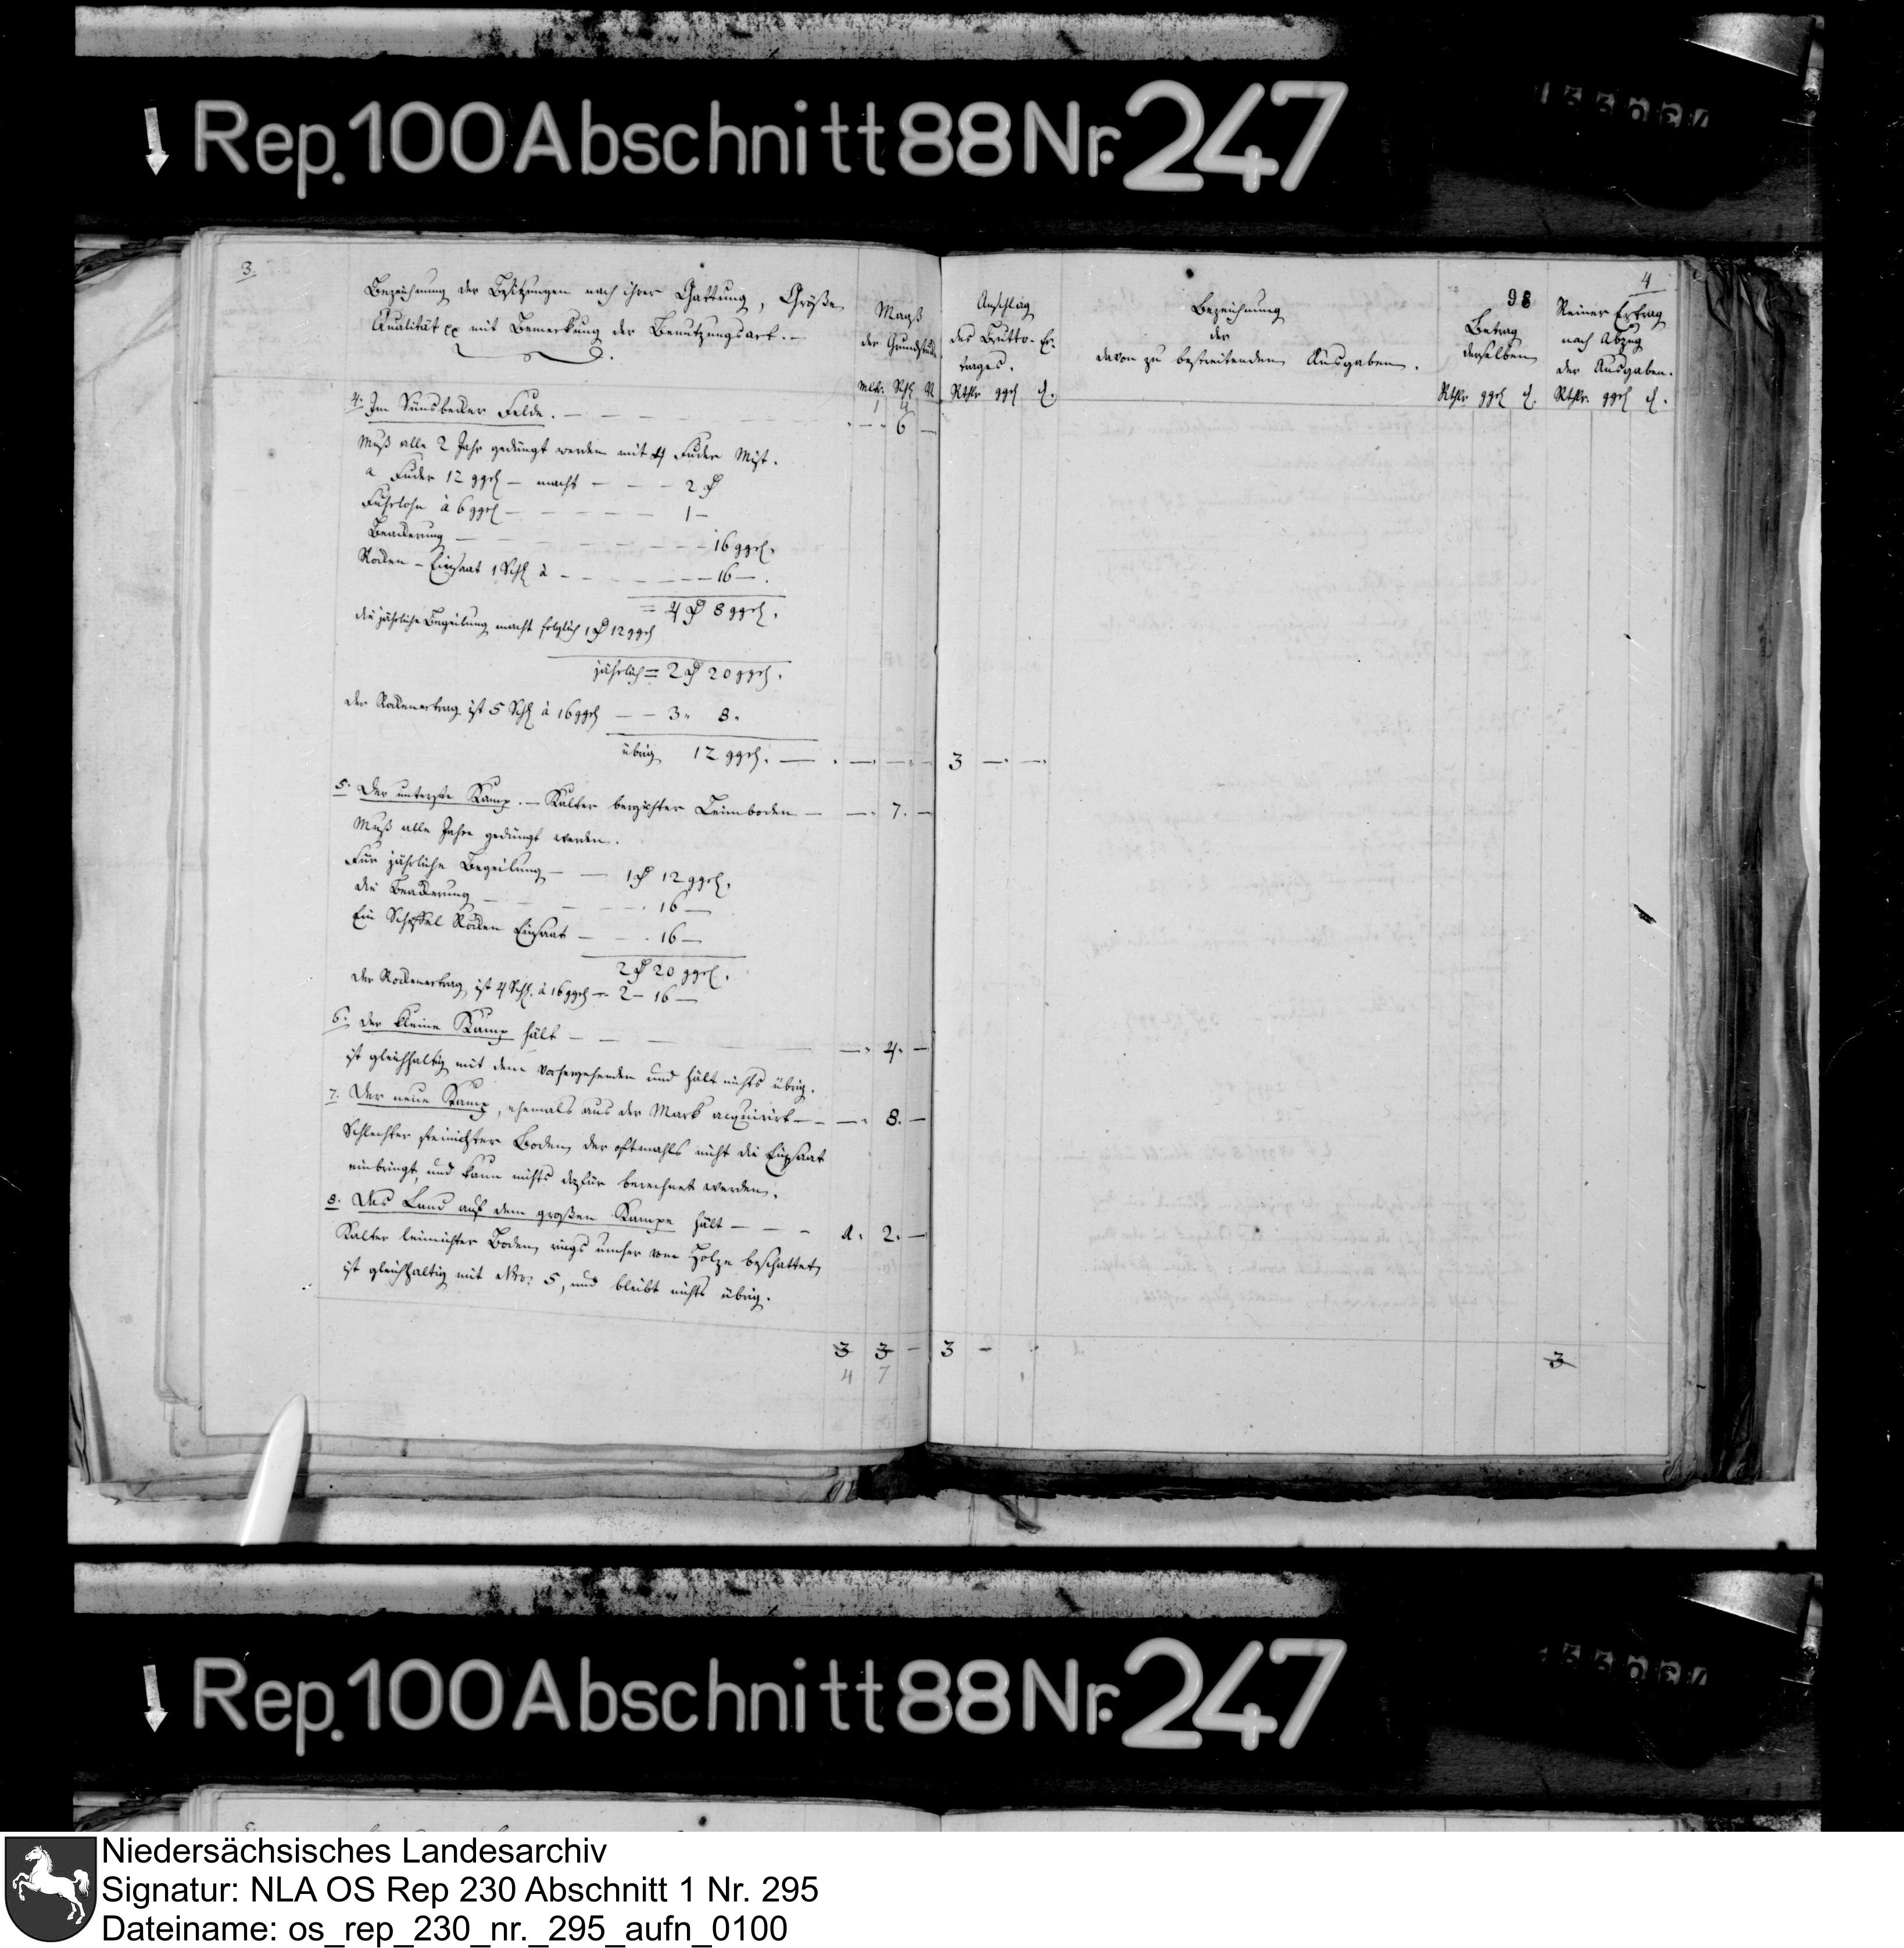 Rep. 100 Abschnitt 88 Nr. 247
3.
Bezeichnung der Besitzungen nach ihrer Gattung, Größe
Qualität xx mit Bemerkung der Benutzungsart. —
Maaß
der Grundstücke
Mltr. Schfl
4. Im Sünsbecker Felde. — — — — 6 —
Muß alle 2 Jahr gedüngt werden mit 4 Fuder Mist.
a Fuder 12 ggrl — macht — — — 2 rt
Fuhrlohn à 6 ggrl — — — — — 1 —
Beackerung — — — — — — 16 ggrl.
Rocken-Einsaat 1 Schfl à — — — — — 16 — .
= 4 rt 8 ggrl.
die jährliche Begeilung macht folglich 1 rt 12 ggrl
jährlich = 2 rt 20 ggrl.
der Rockenertrag ist 5 Schfl à 16 ggrl — — 3 " 8 "
übrig 12 ggrl. — — — —
5. Der unterste Kamp. — Kalter bergichter Leimboden — — 7. —
Muß alle Jahre gedüngt werden.
Für jährliche Begeilung — — 1 rt 12 ggrl.
die Beackerung — — — — 16 —
Ein Scheffel Rocken Einsaat — — 16 —
2 rt 20 ggrl.
der Rockenertrag ist 4 Schfl. à 16 ggrl — 2 — 16 —
6. der kleine Kamp hält — — — — — 4. —
ist gleichhaltig mit dem vorhergehenden und hält nichts übrig.
7. Der neue Kamp, ehemals aus der Mark acquirirt — — — 8. —
Schlechter steinichter Boden, der oftmahls nicht die Einsaat
einbringt, und kann nichts dafür berechnet werden.
8. Das Land auf dem großen Kampe hält — — — 1. 2. —
Kalter leimichter Boden, rings umher vom Holze beschattet,
ist gleichhaltig mit Nro: 5, und bleibt nichts übrig.
3 3 —
4 7
4
98
Anschlag
des Brutto-Er-
trages.
Rthlr ggrl d.
Bezeichnung
der
davon zu bestreitenden Ausgaben.
Betrag
derselben
Rthlr ggrl d.
Reiner Ertrag
nach Abzug
der Ausgaben.
Rthlr. ggrl d.
3 — —
3 —
3
Rep. 100 Abschnitt 88 Nr. 247
Niedersächsisches Landesarchiv
Signatur: NLA OS Rep 230 Abschnitt 1 Nr. 295
Dateiname: os_rep_230_nr._295_aufn_0100